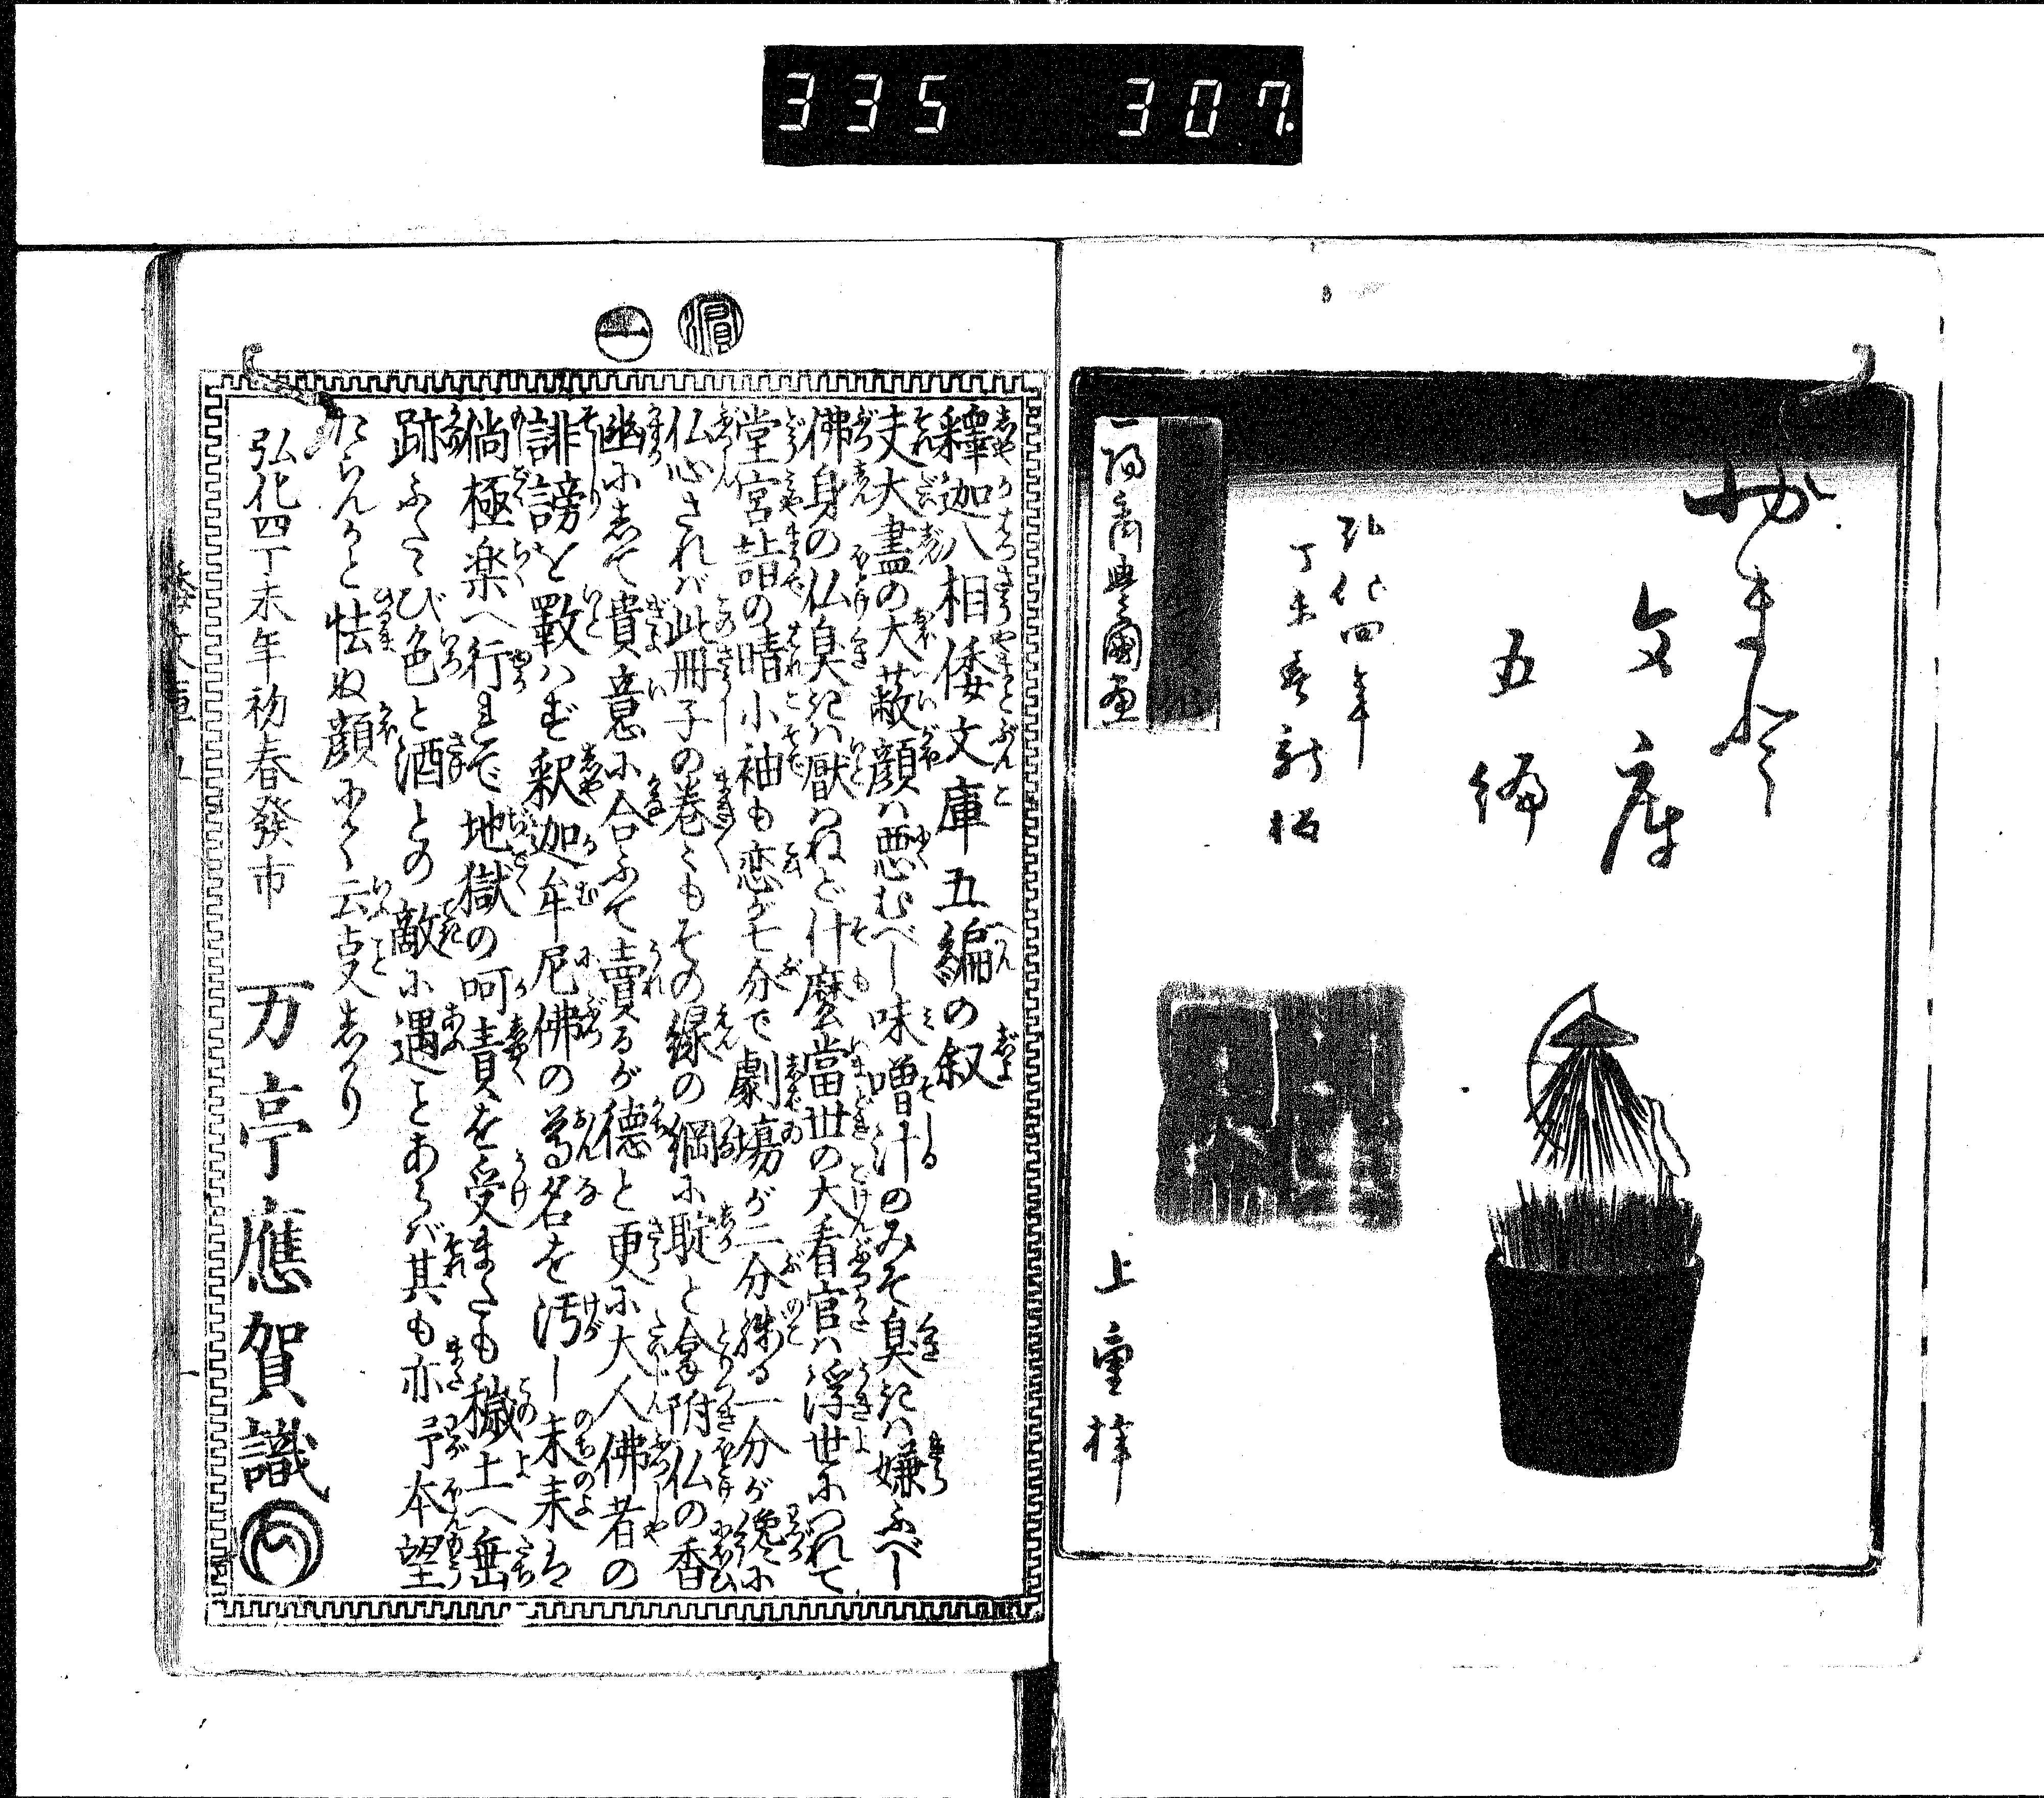 335 307.
やまと
文庫
五編
弘化四年
丁未春新
一陽斎豊國画
上梓
釋迦八相倭文庫五編の叙
夫大盡の大蔽顔ハ悪むべし味噌汁のみそ臭きハ嫌ふべし
佛身の仏臭きハ厭はねど什麼當世の大看官ハ浮世につれて
堂宮詣の晴小袖も恋が七分で劇場が二分残る一分が
仏心されバ此冊子の巻々もその縁の綱に耻と拿附仏の香
幽にして貴意に合ふて賣るが徳と更に大人佛者の
誹謗を厭ハず釈迦牟尼佛の尊名を汚し未来ハ
倘極楽へ行れで地獄の呵責を受またも穢土へ垂
跡ふたゝび色と酒との敵に遇ことあらバ其も亦予本望
たらんかと怯ぬ顔にて云爰しかり
弘化四丁未年初春發市
万亭應賀識